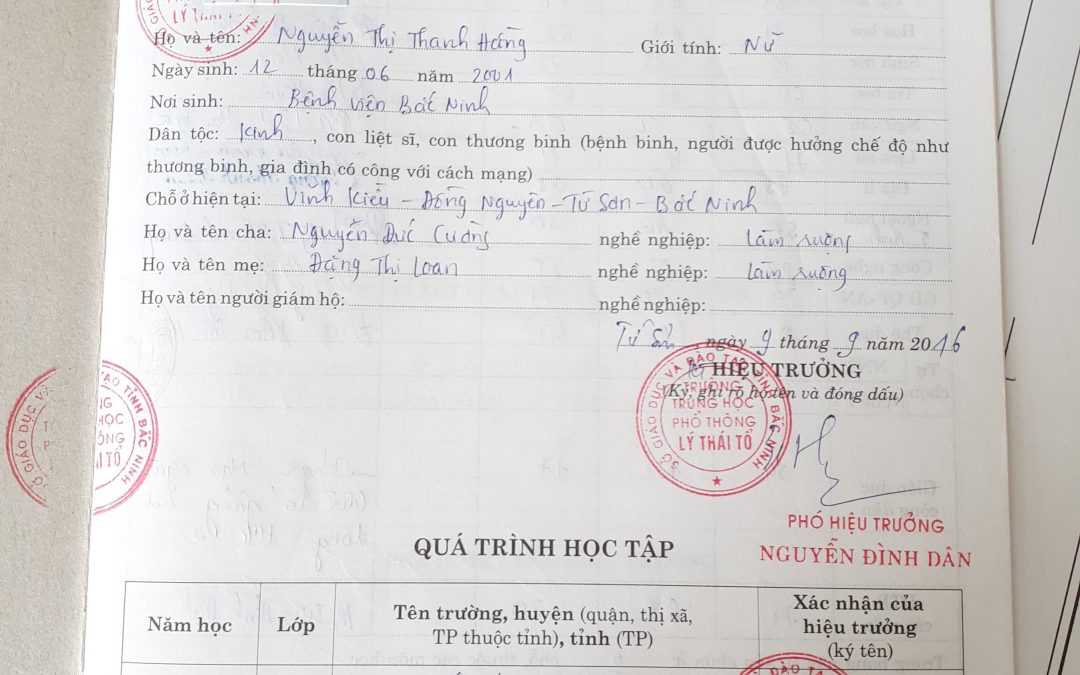 LÝ THÁI
Họ và tên: Nguyễn Thị Thanh Hằng Giới tính: Nữ
Ngày sinh: 12 tháng 06 năm 2001
Nơi sinh: Bệnh viện Bắc Ninh
Dân tộc: Kinh, con liệt sĩ, con thương binh (bệnh binh, người được hưởng chế độ như
thương binh, gia đình có công với cách mạng)
Chỗ ở hiện tại: Vĩnh Kiều - Đồng Nguyên - Từ Sơn - Bắc Ninh
Họ và tên cha: Nguyễn Đức Cường nghề nghiệp: Làm ruộng
Họ và tên mẹ: Đặng Thị Loan nghề nghiệp: Làm ruộng
Họ và tên người giám hộ: nghề nghiệp:
Từ Sơn, ngày 9 tháng 9 năm 2016
HIỆU TRƯỞNG
(Ký, ghi rõ họ tên và đóng dấu)
SỞ GIÁO DỤC VÀ ĐÀO TẠO TỈNH BẮC NINH
TRƯỜNG
TRUNG HỌC
PHỔ THÔNG
LÝ THÁI TỔ
PHÓ HIỆU TRƯỞNG
NGUYỄN ĐÌNH DÂN
QUÁ TRÌNH HỌC TẬP
Năm học Lớp Tên trường, huyện (quận, thị xã, TP thuộc tỉnh), tỉnh (TP) Xác nhận của hiệu trưởng (ký tên)